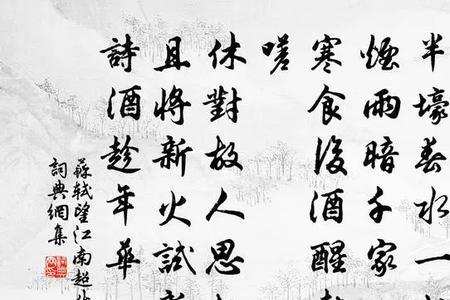 半壕春水一
煙雨暗千家
寒食後酒醒
嗟
休對故人思
且將新火試新
詩酒趁年華
蘇軾望江南超
詞典網集